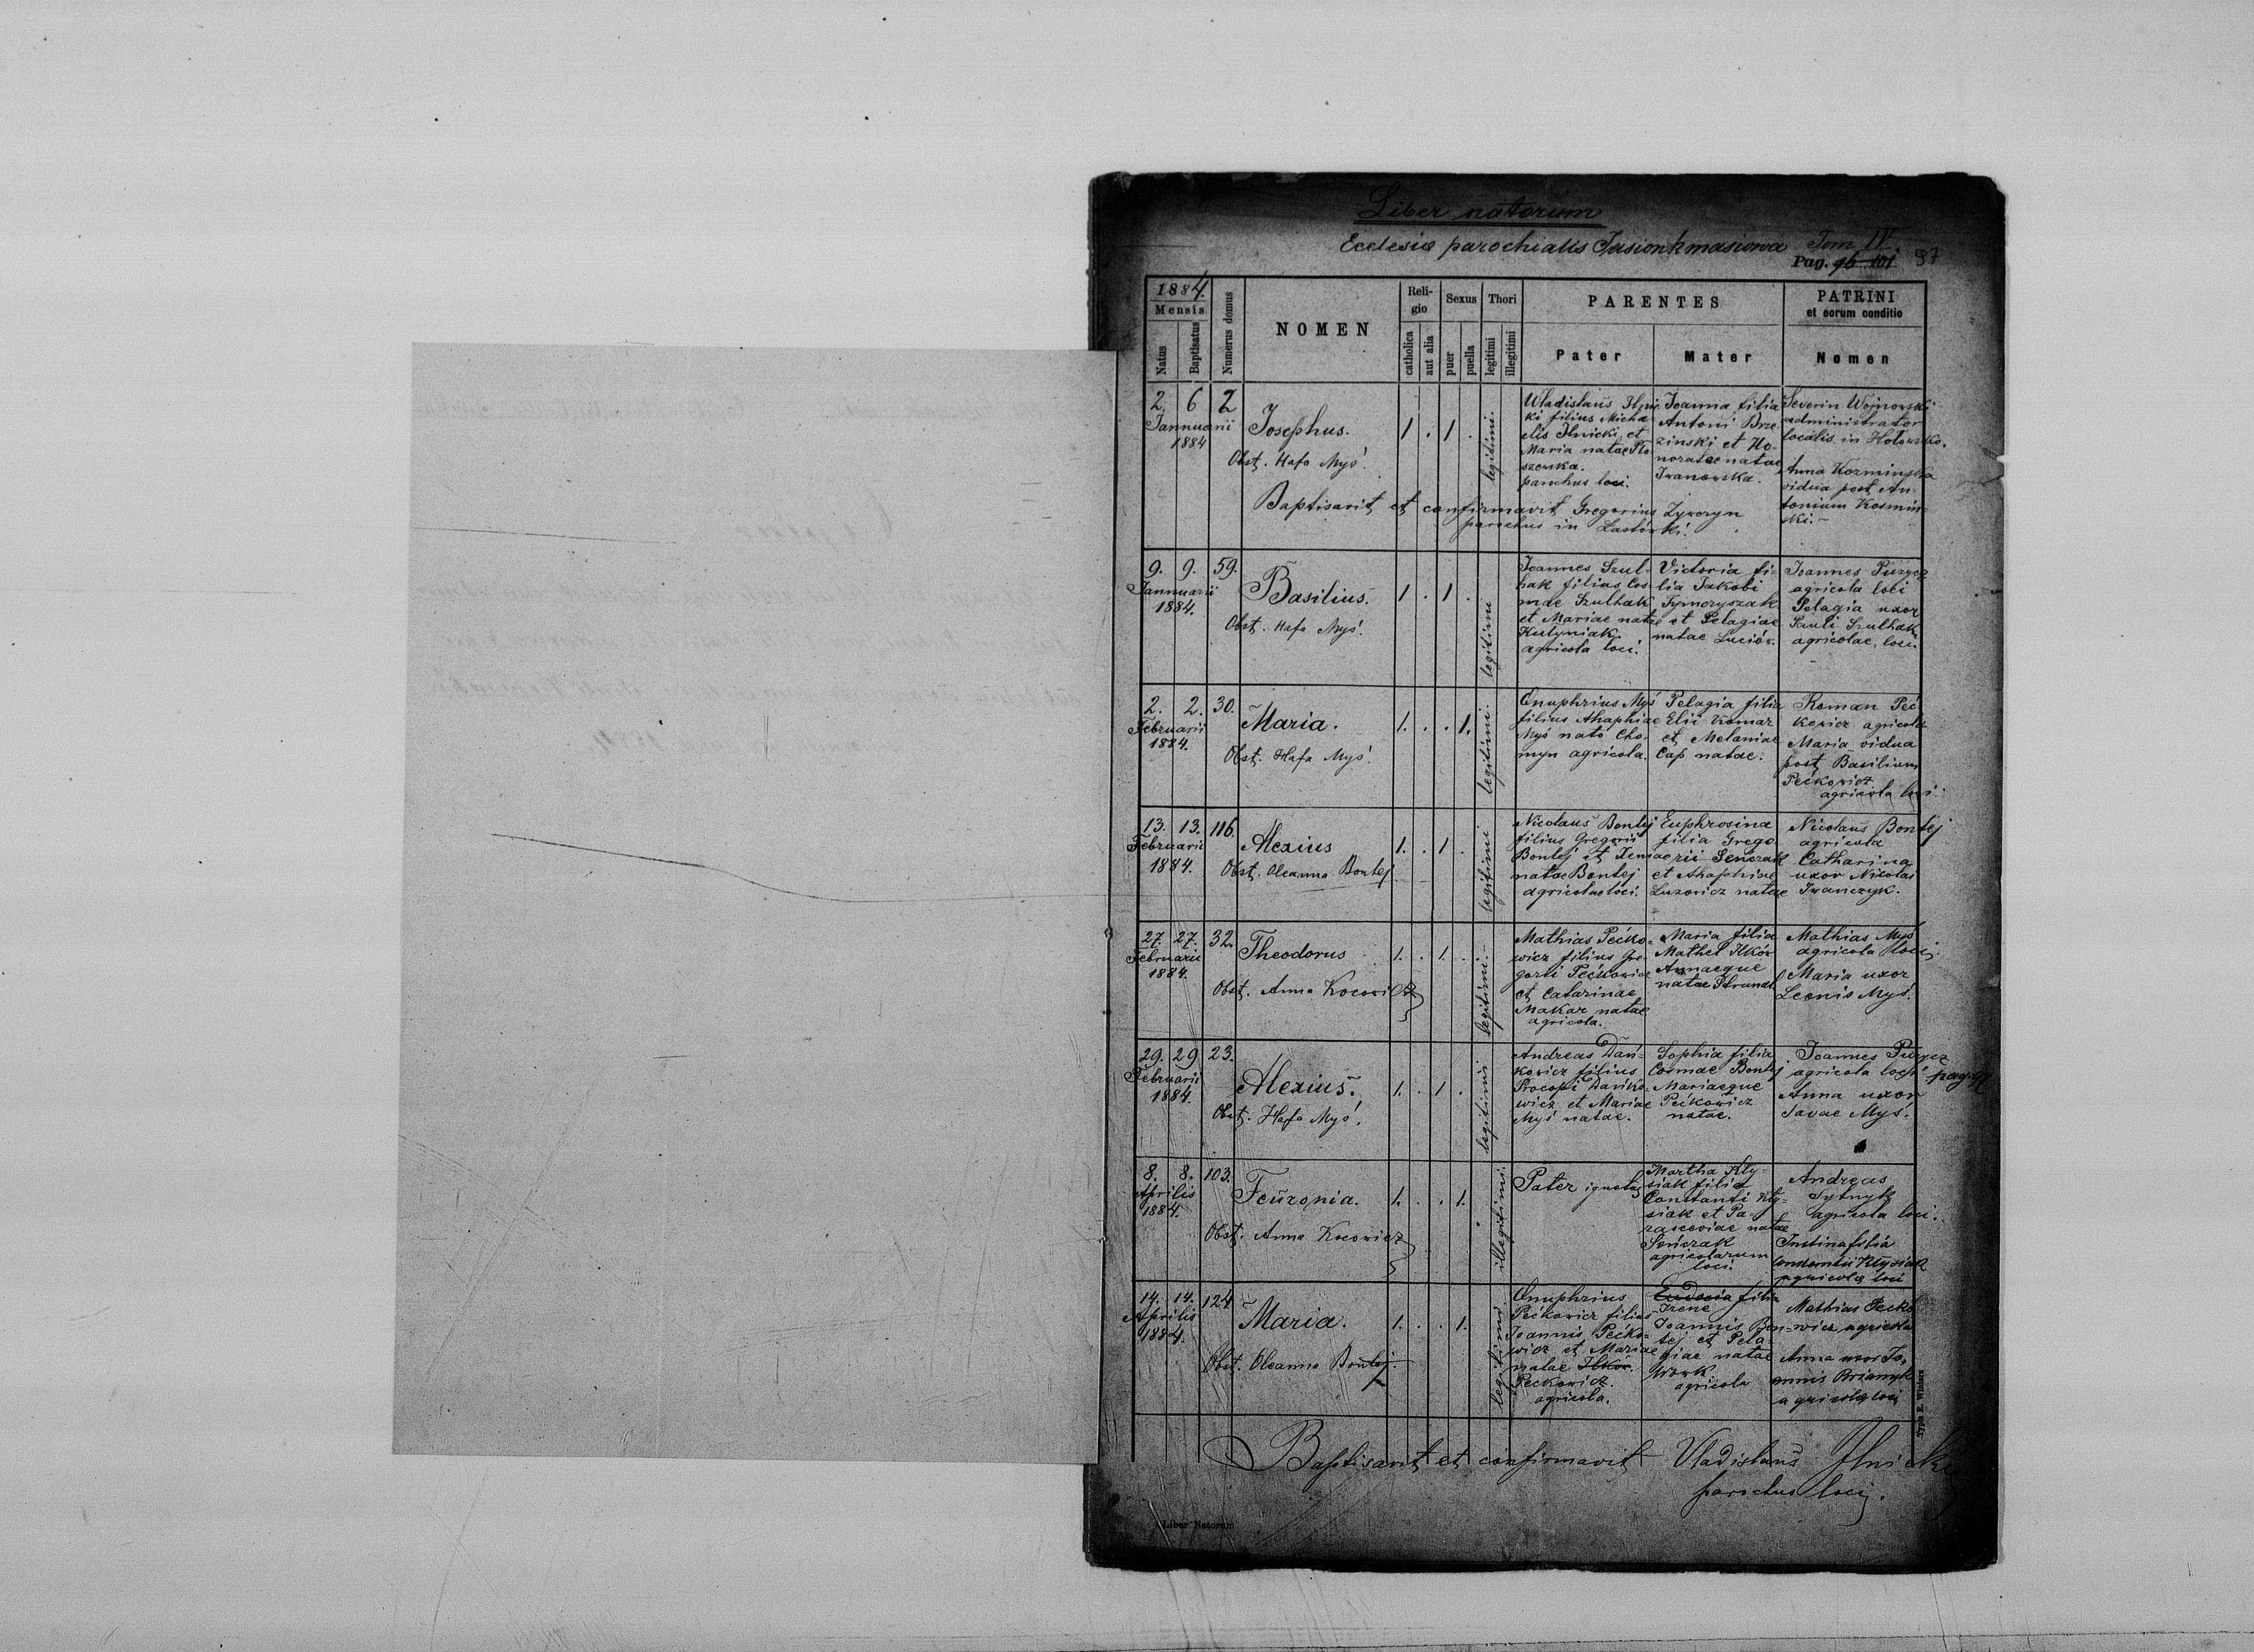 Liber natorum
Ecclesiae parochialis Jasionkmasiowa Tom IV.
Pag. 96 101 97
1884.
Mensis
Natus
Baptisatus
Numerus domus
NOMEN
Religio
catholica
aut alia
Sexus
puer
puella
Thori
legitimi
illegitimi
PARENTES
Pater
Mater
PATRINI
et eorum conditio
Nomen
2. 6 2
Januarii
1884
Josephus.
Obst. Hafa Myś.
1 . 1 .
legitimi.
Wladislaus Ilnic
ki filius Micha
elis Ilnicki et
Maria natae Plo
szewska.
parochus loci.
Joanna filia
Antoni Brze
zinski et Ho-
noratae natae
Iwanowska.
Severin Wojnowski
administrator
localis in Holowsko.
Anna Kozminska
vidua post An-
tonium Kosmin-
ski.-
Baptisavit et confirmavit Gregorius Zyworyn
parochus in Lastówki.
9. 9. 59.
Januarii
1884.
Basilius.
Obst. Hafa Myś.
1 . 1 .
legitimi
Joannes Szul-
hak filius Cos-
mae Szulhak
et Mariae natae
Kustyniak.
agricola loci.
Victoria fi-
lia Jakobi
Tymoryszak
et Pelagiae
natae Luciów.
Joannes Puzycz
agricola loci
Pelagia uxor
Pauli Szulhak
agricolae loci.
2. 2. 30.
Februarii
1884.
Maria.
Obst. Hafa Myś.
1. . . 1.
legitimi.
Onuphrius Myś
filius Ahaphiae
Myś nató Cho-
myn agricola.
Pelagia filia
Elii Komar
et Melaniae
Cap natae.
Roman Peć
kowicz agricola
Maria vidua
post Basilium
Pećkowicz
agricola loci.
13. 13. 116.
Februarii
1884.
Alexius
Obst. Oleanna Bontej
1. . 1 .
legitimi
Nicolaus Bontej
filius Gregorii
Bontej et Xeniae
natae Bontej
agricolae loci.
Euphrosina
filia Grego
rii Senczak
et Ahaphiae
Luzowicz natae
Nicolaus Bontej
agricola
Catharina
uxor Nicolai
Iwanczyk.
27. 27. 32.
Februarii
1884.
Theodorus
Obst. Anna Kocowicz
1. . 1. .
legitimi.-
Mathias Pećko-
wicz filius Gre-
gorii Pećkowicz
et Catarinae
Makar natae
agricola.
Maria filia
Mathei Ilków
Annaeque
natae
Mathias Myś
agricola loci.
Maria uxor
Leonis Myś.
29. 29 23.
Februarii
1884.
Alexius.
Obst. Hafa Myś.
1. . 1 .
legitimi
Andreas Dań-
kowicz filius
Procopi Dańko-
wicz et Mariae
Myś natae.
Sophia filia
Cosmae Bontej
Mariaeque
Pećkowicz
natae.
Joannes Puzycz
agricola loci pag. 97
Anna uxor
Savae Myś.
8. 8. 103.
Aprilis
1884.
Feuronia.
Obst. Anna Kocowicz
1. . . 1.
illegitimi.
Pater ignotus
Martha Kły-
siak filia
Constanti Kły-
siak et Pa-
rasceviae natae
Senczak
agricolarum
loci.
Andreas
Sytnyk
agricola loci.
Justina filia
Constantii Kłysiak
agricola loci
14. 14. 124
Aprilis
1884.
Maria.
Obst. Oleanna Bontej.
1. . . 1.
legitimi
Onuphrius
Pećkowicz filius
Joannis Pećko-
wicz et Mariae
natae Ilków.
Peckowicz.
agricola.
Eudocia filia
Irene
Joannis Bon-
tej et Pela-
giae natae
Wowk
agricola
Mathias Pećko
wicz agricola
Anna uxor Jo-
annis Brianyk
agricola loci
Baptisavit et confirmavit Vladislaus Ilnicki
parochus loci.
Liber Natorum
Typis E. Winiarz